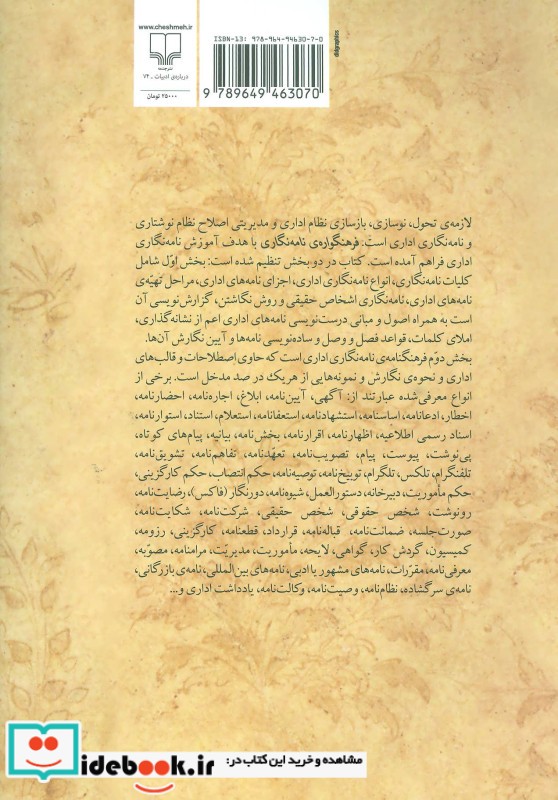 www.cheshmeh.ir
نشرچشمه
درباره‌ی ادبیات ـ ۷۴
۲۵۰۰۰ تومان
ISBN-13: ۹۷۸-۹۶۴-۹۴۶۳۰-۷-۰
9 789649 463070
didgraphics
لازمه‌ی تحول، نوسازی، بازسازی نظام اداری و مدیریتی اصلاح نظام نوشتاری
و نامه‌نگاری اداری است. فرهنگواره‌ی نامه‌نگاری با هدف آموزش نامه‌نگاری
اداری فراهم آمده است. کتاب در دو بخش تنظیم شده است: بخش اوّل شامل
کلیات نامه‌نگاری، انواع نامه‌نگاری اداری، اجزای نامه‌های اداری، مراحل تهیّه‌ی
نامه‌های اداری، نامه‌نگاری اشخاص حقیقی و روش نگاشتن، گزارش‌نویسی آن
است به همراه اصول و مبانی درست‌نویسی نامه‌های اداری اعم از نشانه‌گذاری،
املای کلمات، قواعد فصل و وصل و ساده‌نویسی نامه‌ها و آیین نگارش آن‌ها.
بخش دوّم فرهنگنامه‌ی نامه‌نگاری اداری است که حاوی اصطلاحات و قالب‌های
اداری و نحوه‌ی نگارش و نمونه‌هایی از هریک در صد مدخل است. برخی از
انواع معرفی‌شده عبارتند از: آگهی، آیین‌نامه، ابلاغ، اجاره‌نامه، احضارنامه،
اخطار، ادعانامه، اساسنامه، استشهادنامه، استعفانامه، استعلام، استناد، استوارنامه،
اسناد رسمی اطلاعیه، اظهارنامه، اقرارنامه، بخش‌نامه، بیانیه، پیام‌های کوتاه،
پی‌نوشت، پیوست، پیام، تصویب‌نامه، تعهّدنامه، تفاهم‌نامه، تشویق‌نامه،
تلفنگرام، تلکس، تلگرام، توبیخ‌نامه، توصیه‌نامه، حکم انتصاب، حکم کارگزینی،
حکم مأموریت، دبیرخانه، دستورالعمل، شیوه‌نامه، دورنگار (فاکس)، رضایت‌نامه،
رونوشت، شخص حقوقی، شخص حقیقی، شرکت‌نامه، شکایت‌نامه،
صورت‌جلسه، ضمانت‌نامه، قباله‌نامه، قرارداد، قطعنامه، کارگزینی، رزومه،
کمیسیون، گردش کار، گواهی، لایحه، مأموریت، مدیریّت، مرامنامه، مصوّبه،
معرفی‌نامه، مقرّرات، نامه‌های مشهور یا ادبی، نامه‌های بین‌المللی، نامه‌ی بازرگانی،
نامه‌ی سرگشاده، نظام‌نامه، وصیت‌نامه، وکالت‌نامه، یادداشت اداری و...
مشاهده و خرید این کتاب در:
idebook.ir